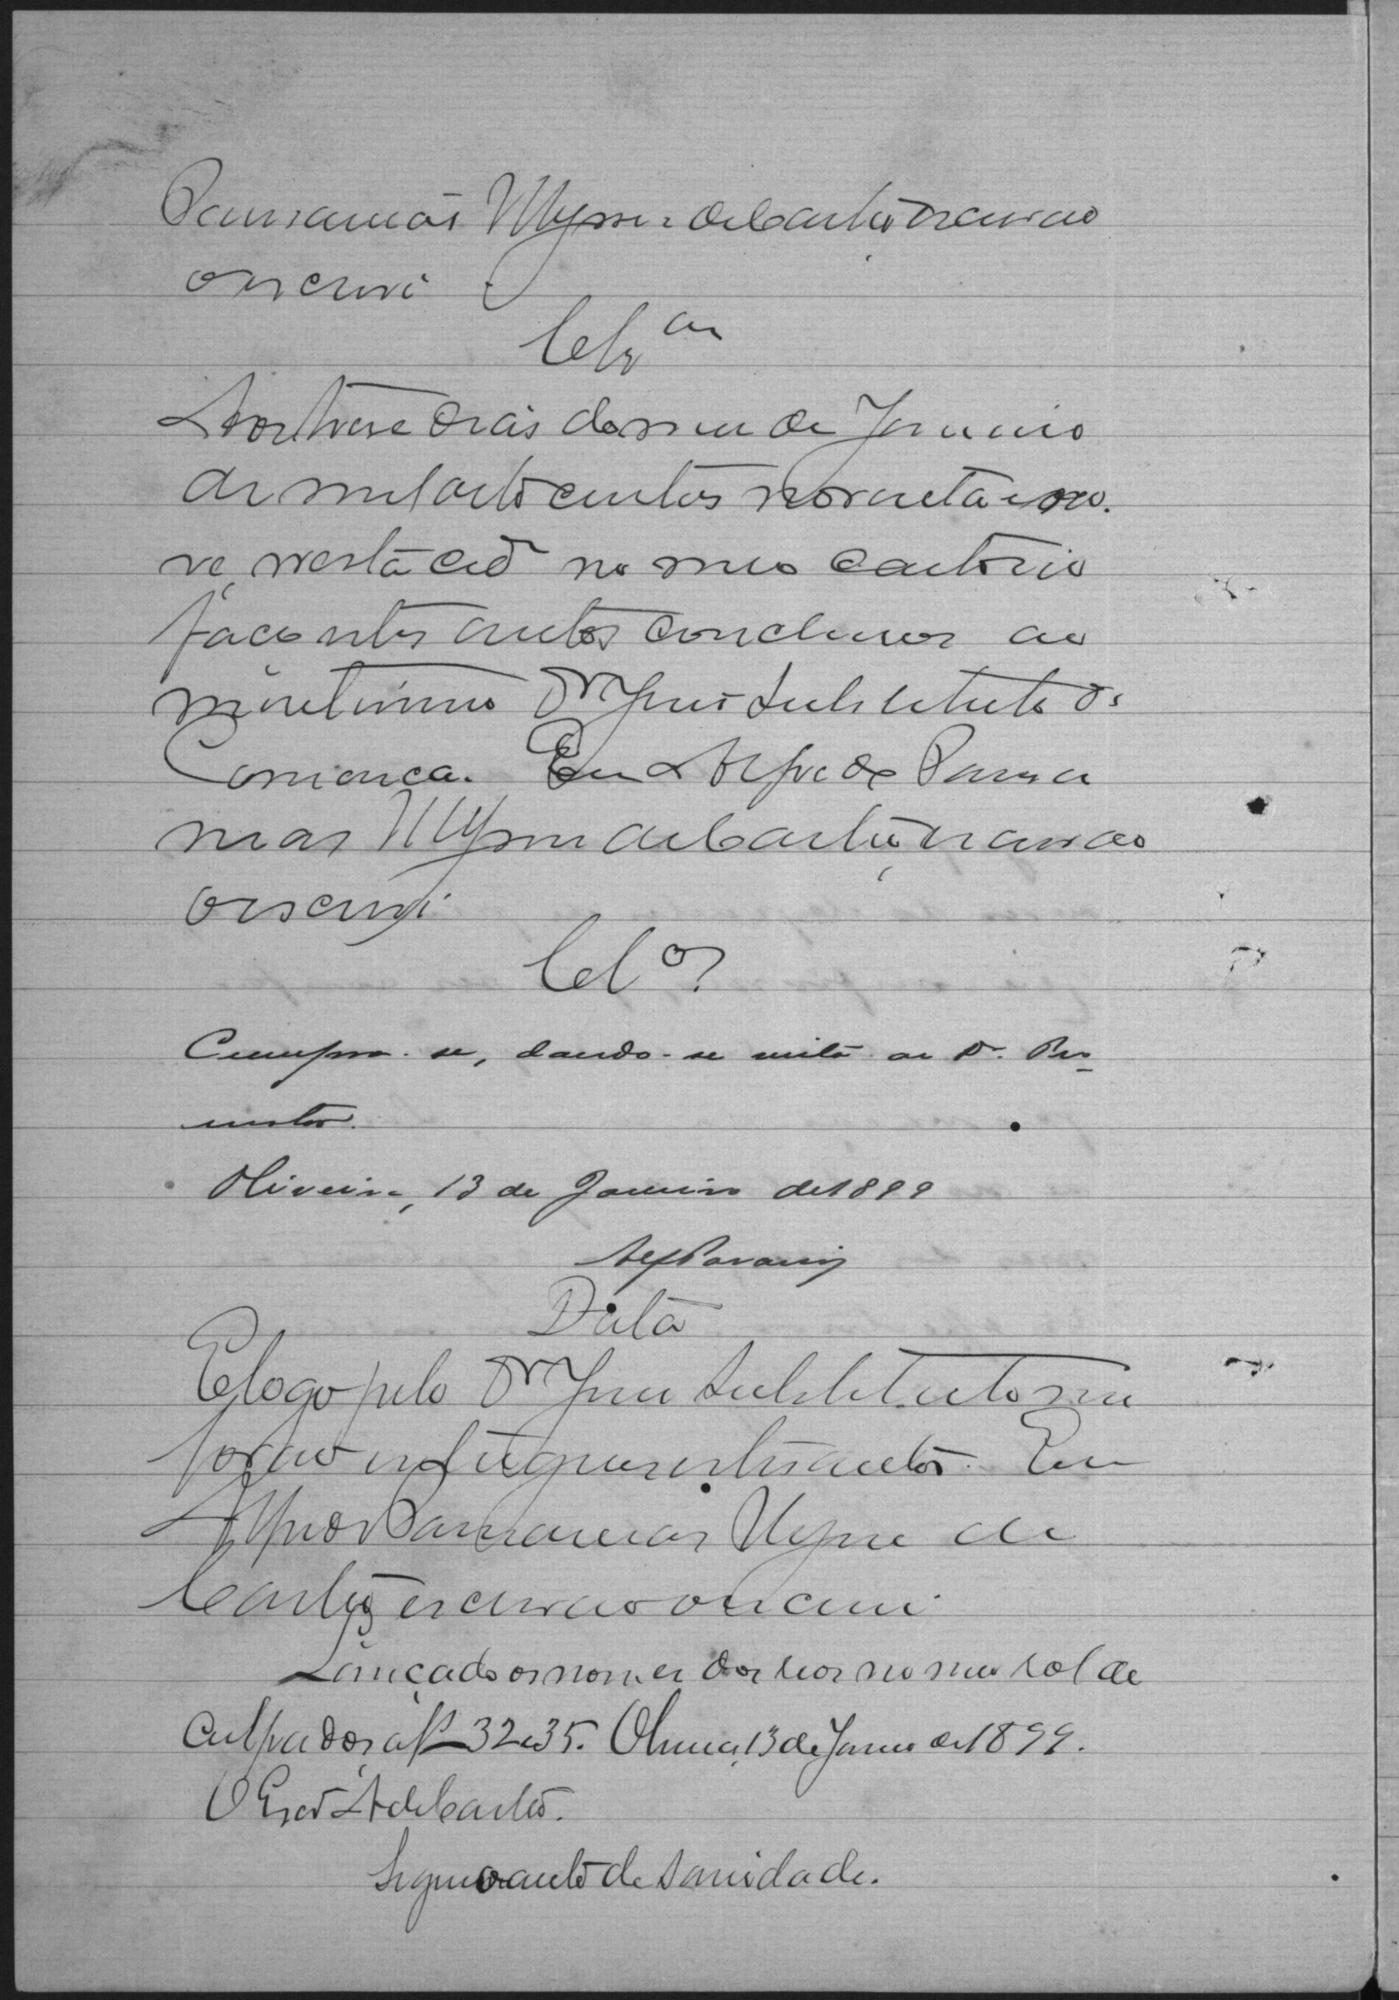 Parnamás Ulysses de Castro escrivão
o escrevi
Cls am
Aos treze dias do mes de Janeiro
de mil oito centos noventa e no-
ve, nesta cidᵉ no meu cartorio
faço estes autos conclusos ao
meretissimo Dr Juis Substituto da
Comarca. Eu Alfredo Parna
mas Ulysses de Castro, escrivão
o escrevi
Clos
Cumpra-se, dando-se vista ao Dr. Pro-
motor.
Oliveira, 13 de Janeiro de 1899
Data
E logo pelo Dr Juis Substituto me
forão entregues estes autos. Eu
Alfredo Parnamas Ulysses de
Castro escrivão o escrevi
Lançado os nomes dos reos no meu rol de
culpados, a fls 32 e 35. Olivrª, 13 de Janrº de 1899.
O Escrᵃᵒ A de Castro.
Segue o auto de sanidade.